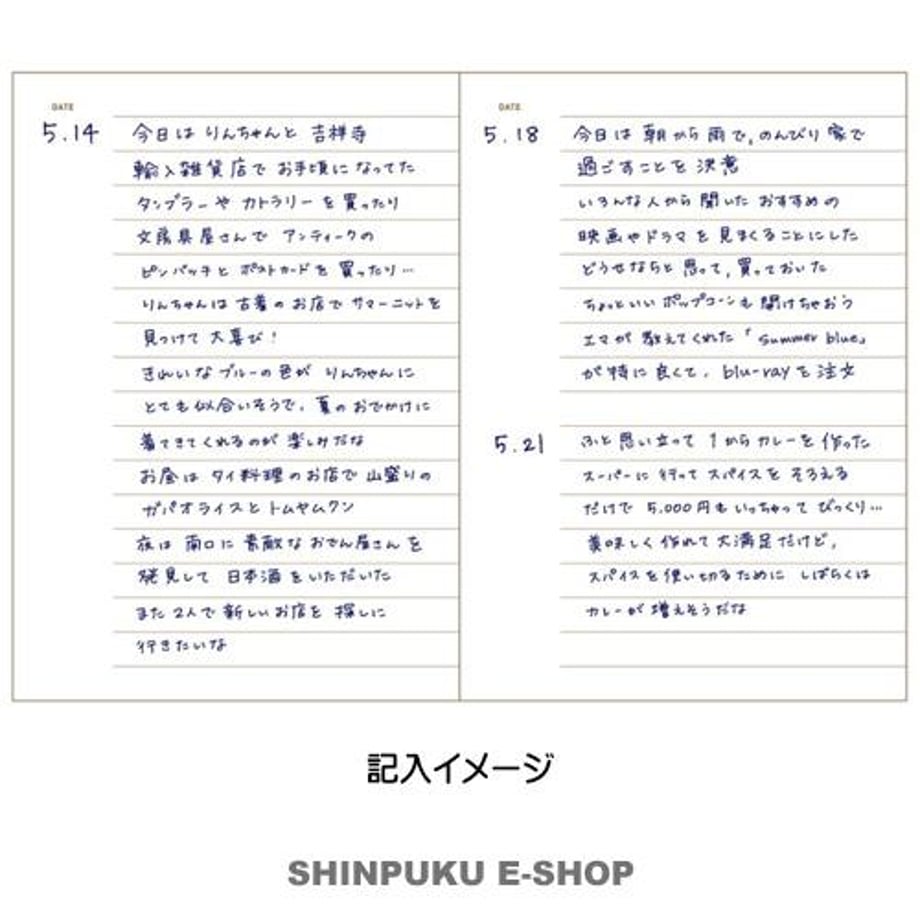 DATE
5.14
今日は りんちゃんと 吉祥寺
輸入雑貨店で お手頃になってた
タンブラーや カトラリーを買ったり
文房具屋さんで アンティークの
ピンバッチと ポストカードを 買ったり…
りんちゃんは 古着のお店で サマーニットを
見つけて 大喜び!
きれいな ブルーの色が りんちゃんに
とても似合いそうで、夏の おでかけに
着てきてくれるのが 楽しみだな
お昼は タイ料理のお店で 山盛りの
ガパオライスと トムヤムクン
夜は 南口に 素敵な おでん屋さんを
発見して 日本酒をいただいた
また 2人で 新しいお店を 探しに
行きたいな
DATE
5.18
今日は 朝から雨で、のんびり 家で
過ごすことを 決意
いろんな人から 聞いた おすすめの
映画やドラマを 見まくることにした
どうせならと 思って、買っておいた
ちょっといい ポップコーンも 開けちゃおう
エマが 教えてくれた「summer blue」
が特に 良くて、blu-rayを 注文
5.21
ふと 思い立って 1からカレーを 作った
スーパーに 行って スパイスを そろえる
だけで 5,000円も いっちゃって びっくり…
美味しく 作れて 大満足だけど、
スパイスを 使い切るために しばらくは
カレーが 増えそうだな
記入イメージ
SHINPUKU E-SHOP